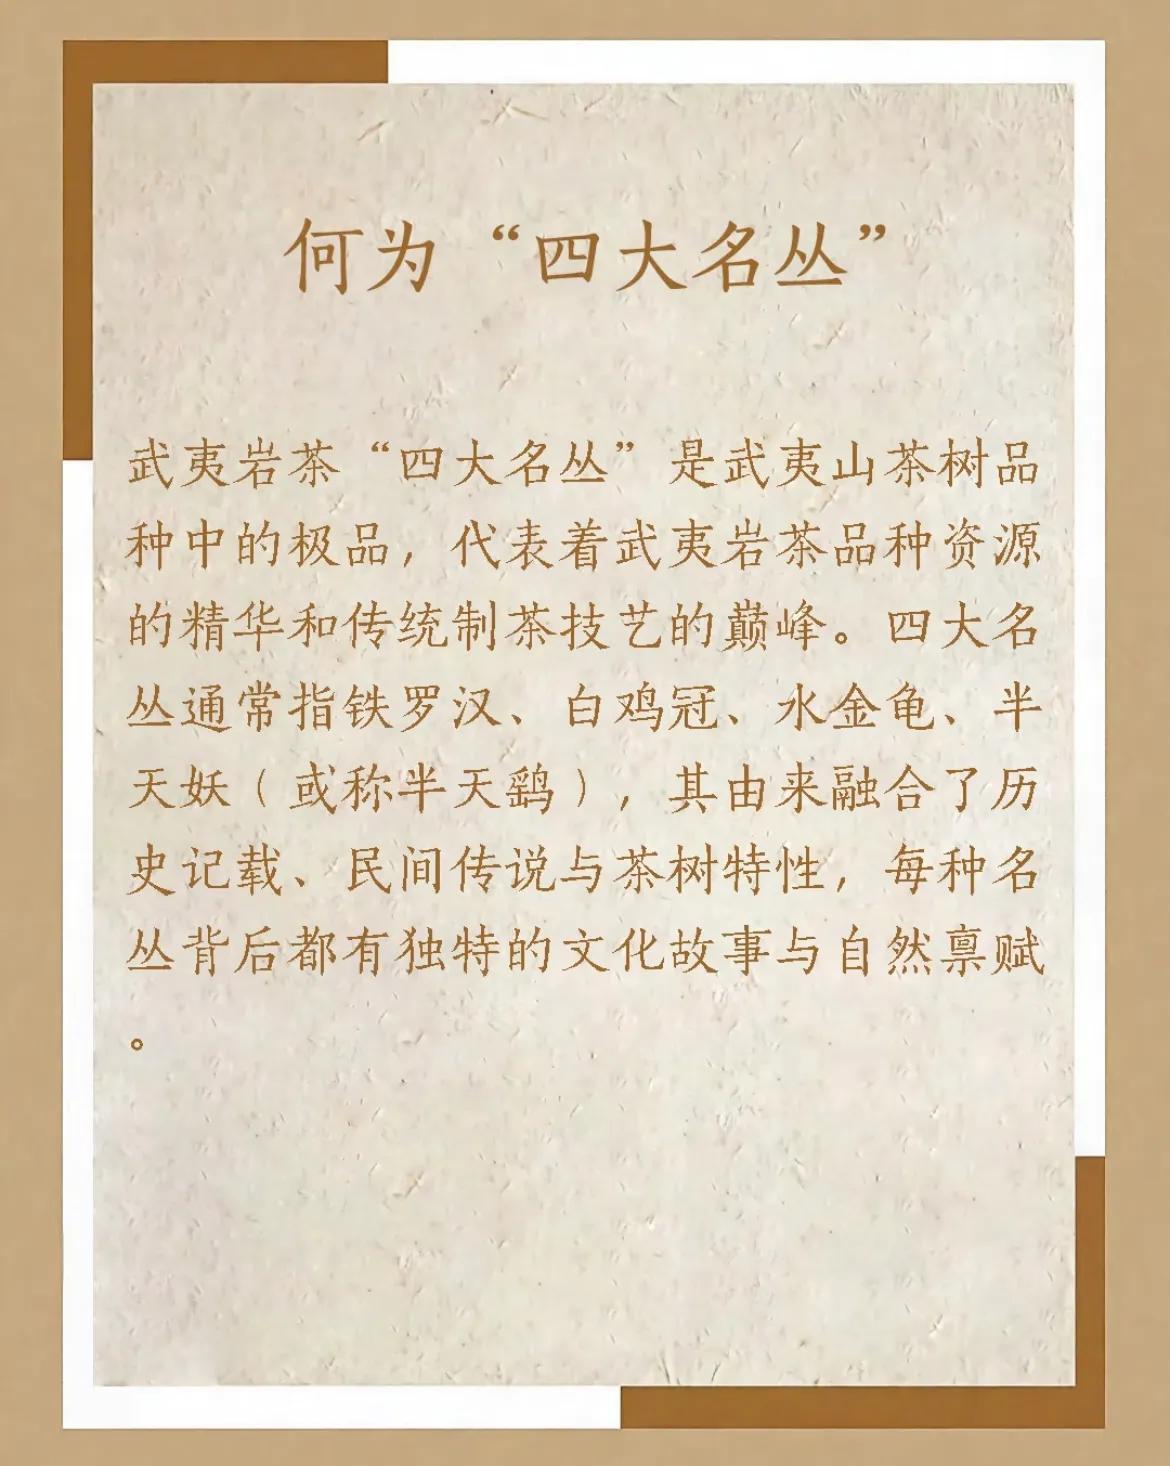 何为“四大名丛”
武夷岩茶“四大名丛”是武夷山茶树品
种中的极品，代表着武夷岩茶品种资源
的精华和传统制茶技艺的巅峰。四大名
丛通常指铁罗汉、白鸡冠、水金龟、半
天妖（或称半天鹞），其由来融合了历
史记载、民间传说与茶树特性，每种名
丛背后都有独特的文化故事与自然禀赋
。